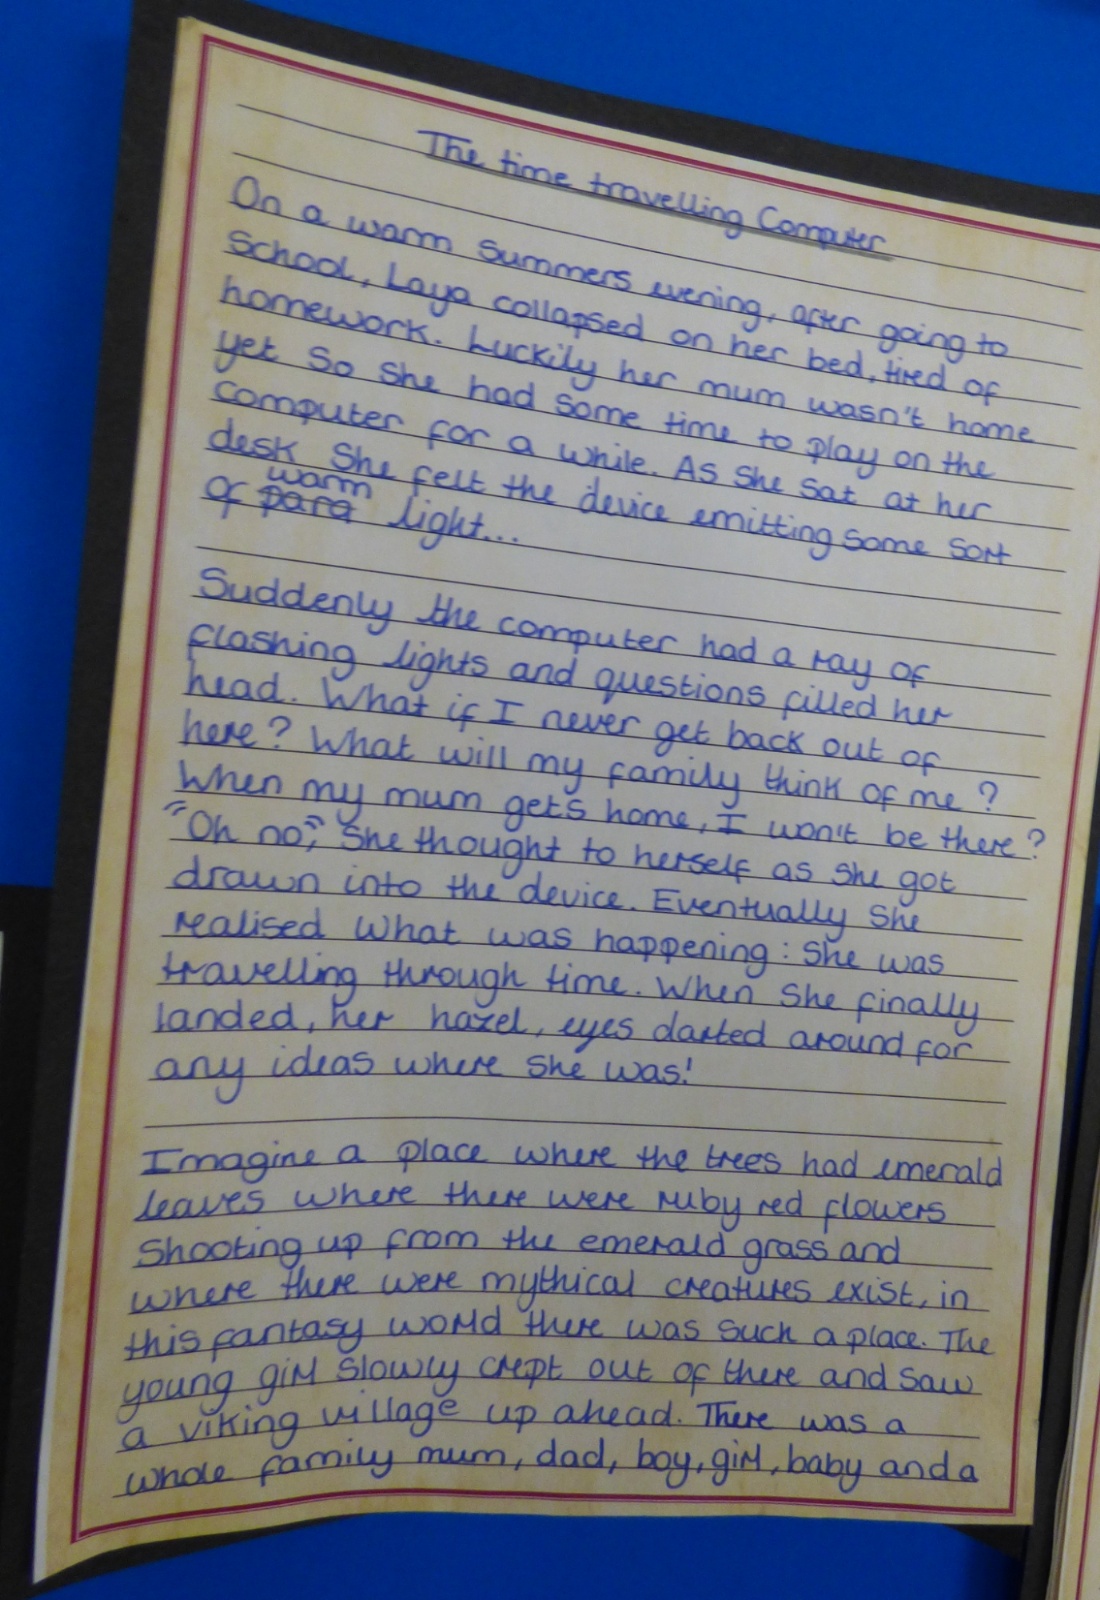 The time travelling Computer
On a warm Summers evening, after going to
School, Laya collapsed on her bed, tired of
homework. Luckily her mum wasn't home
yet So She had Some time to play on the
computer for a while. As She Sat at her
desk She felt the device emitting some sort
warm
of para light...
Suddenly the computer had a ray of
flashing lights and questions filled her
head. What if I never get back out of
here? What will my family think of me?
When my mum gets home, I won't be there?
"Oh no", She thought to herself as She got
drawn into the device. Eventually She
realised what was happening: She was
travelling through time. When She finally
landed, her hazel, eyes darted around for
any ideas where She was!
Imagine a place where the trees had emerald
leaves where there were ruby red flowers
Shooting up from the emerald grass and
where there were mythical creatures exist, in
this fantasy world there was such a place. The
young girl Slowly crept out of there and Saw
a viking village up ahead. There was a
whole family mum, dad, boy, girl, baby and a